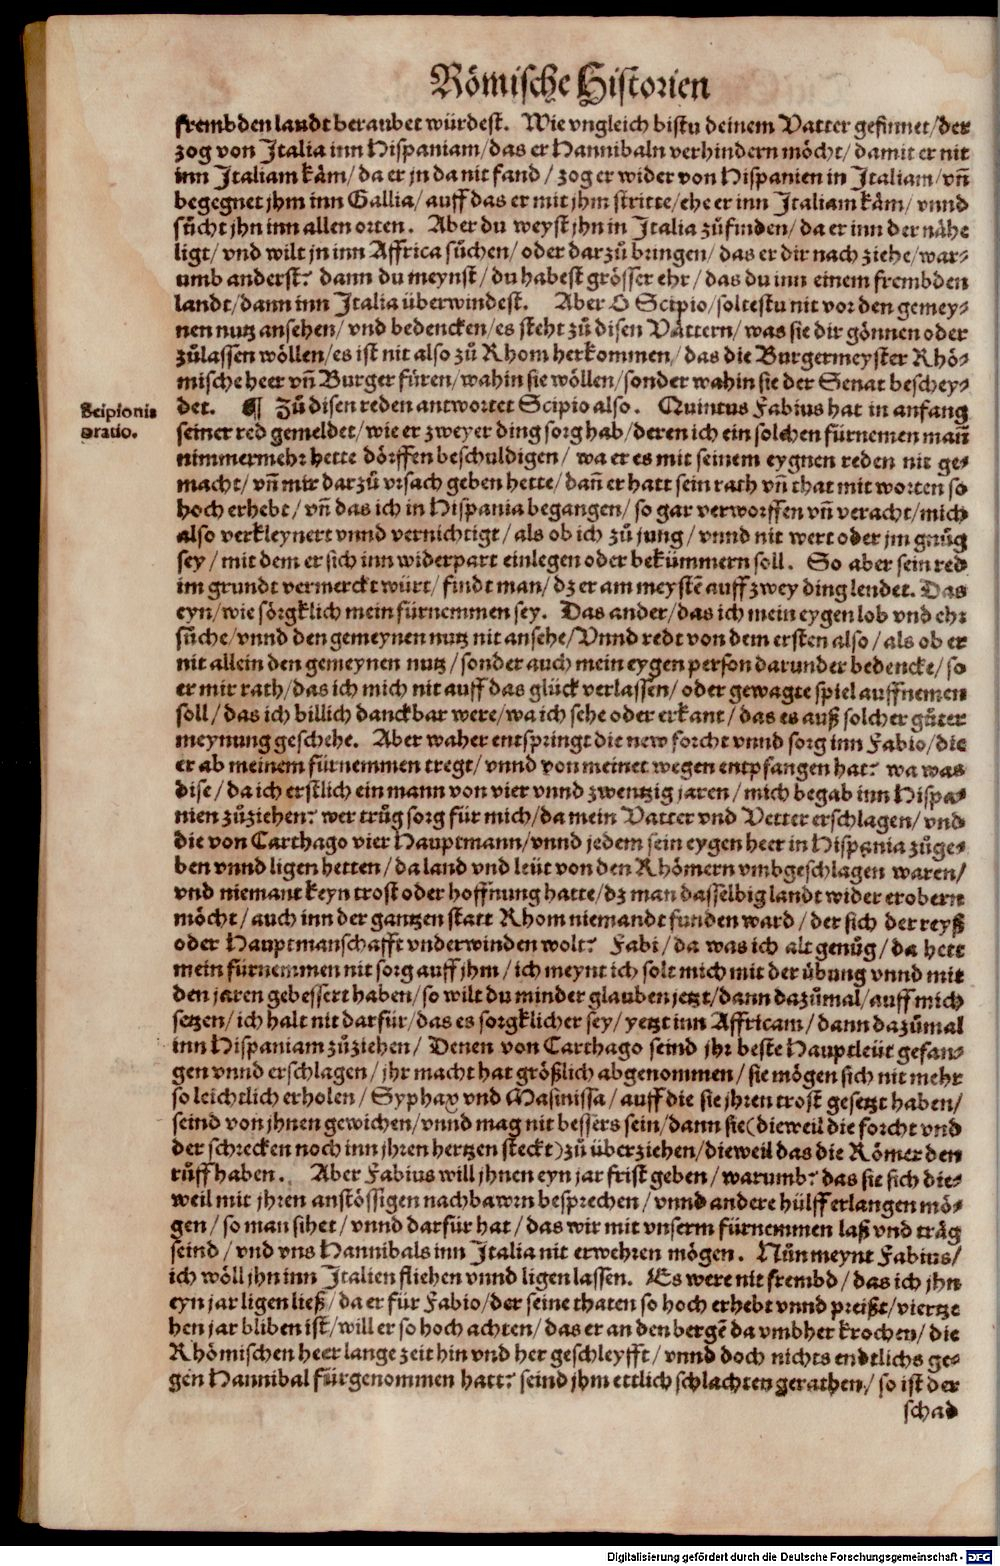 Römische Historien
frembden landt beraubet würdest. Wie vngleich bistu deinem Vatter gesinnet/ der
zog von Italia inn Hispaniam/ das er Hannibaln verhindern möcht/ damit er nit
inn Italiam käm/ da er jn da nit fand/ zog er wider von Hispanien in Italiam/ vñ
begegnet jhm inn Gallia/ auff das er mit jhm stritte/ ehe er inn Italiam käm/ vnnd
sůcht jhn inn allen orten. Aber du weyst jhn in Italia zůfinden/ da er inn der nähe
ligt/ vnd wilt jn inn Affrica sůchen/ oder darzů bringen/ das er dir nach ziehe/ war-
umb anderst? dann du meynst/ du habest grösser ehr/ das du inn einem frembden
landt/ dann inn Italia überwindest. Aber O Scipio/ soltestu nit vor den gemey-
nen nutz ansehen/ vnd bedencken/ es steht zů disen Vättern/ was sie dir gönnen oder
zůlassen wöllen/ es ist nit also zů Rhom herkommen/ das die Burgermeyster Rhö-
mische heer vñ Burger füren/ wahin sie wöllen/ sonder wahin sie der Senat beschey-
det. ¶ Zů disen reden antwortet Scipio also. Quintus Fabius hat in anfang
Scipionis
oratio.
seiner red gemeldet/ wie er zweyer ding sorg hab/ deren ich ein solchen fürnemen mañ
nimmermehr hette dörffen beschuldigen/ wa er es mit seinem eygnen reden nit ge-
macht/ vñ mir darzů vrsach geben hette/ dañ er hatt sein rath vñ that mit worten so
hoch erhebt/ vñ das ich in Hispania begangen/ so gar verworffen vñ veracht/ mich
also verkleynert vnnd vernichtigt/ als ob ich zů jung/ vnnd nit wert oder jm gnůg
sey/ mit dem er sich inn widerpart einlegen oder bekümmern soll. So aber sein red
im grundt vermerckt würt/ findt man/ dz er am meystē auff zwey ding lendet. Das
eyn/ wie sörgklich mein fürnemmen sey. Das ander/ das ich mein eygen lob vnd ehr
sůche/ vnnd den gemeynen nutz nit ansehe/ Vnnd redt von dem ersten also/ als ob er
nit allein den gemeynen nutz/ sonder auch mein eygen person darunder bedencke/ so
er mir rath/ das ich mich nit auff das glück verlassen/ oder gewagte spiel auffnemen
soll/ das ich billich danckbar were/ wa ich sehe oder erkant/ das es auß solcher gůter
meynung geschehe. Aber waher entspringt die new forcht vnnd sorg inn Fabio/ die
er ab meinem fürnemmen tregt/ vnnd von meinet wegen entpfangen hat? wa was
dise/ da ich erstlich ein mann von vier vnnd zwentzig jaren/ mich begab inn Hispa-
nien zůziehen? wer trůg sorg für mich/ da mein Vatter vnd Vetter erschlagen/ vnd
die von Carthago vier Hauptmann/ vnnd jedem sein eygen heer in Hispania zůge-
ben vnnd ligen hetten/ da land vnd leüt von den Rhömern vmbgeschlagen waren/
vnd niemant keyn trost oder hoffnung hatte/ dz man dasselbig landt wider erobern
möcht/ auch inn der gantzen statt Rhom niemandt funden ward/ der sich der reyß
oder Hauptmanschafft vnderwinden wolt? Fabi/ da was ich alt genůg/ da hett
mein fürnemmen nit sorg auff jhm/ ich meynt ich solt mich mit der übung vnnd mit
den jaren gebessert haben/ so wilt du minder glauben jetzt/ dann dazůmal/ auff mich
setzen/ ich halt nit darfür/ das es sorgklicher sey/ yetzt inn Affricam/ dann dazůmal
inn Hispaniam zůziehen/ Denen von Carthago seind jhr beste Hauptleüt gefan-
gen vnnd erschlagen/ jhr macht hat größlich abgenommen/ sie mögen sich nit mehr
so leichtlich erholen/ Syphax vnd Masinissa/ auff die sie jhren trost gesetzt haben/
seind von jhnen gewichen/ vnnd mag nit bessers sein/ dann sie (dieweil die forcht vnd
der schrecken noch inn jhren hertzen steckt) zů überziehen/ dieweil das die Römer den
růff haben. Aber Fabius will jhnen eyn jar frist geben/ warumb? das sie sich die-
weil mit jhren anstössigen nachbawrn besprechen/ vnnd andere hülff erlangen mö-
gen/ so man sihet/ vnnd darfür hat/ das wir mit vnserm fürnemmen laß vnd träg
seind/ vnd vns Hannibals inn Italia nit erwehren mögen. Nůn meynt Fabius/
ich wöll jhn inn Italien fliehen vnnd ligen lassen. Es were nit frembd/ das ich jhn
eyn jar ligen ließ/ da er für Fabio/ der seine thaten so hoch erhebt vnnd preißt/ viertze
hen jar bliben ist/ will er so hoch achten/ das er an den bergē da vmbher krochen/ die
Rhömischen heer lange zeit hin vnd her geschleyfft/ vnnd doch nichts endtlichs ge-
gen Hannibal fürgenommen hatt? seind jhm ettlich schlachten gerathen/ so ist der
schad
Digitalisierung gefördert durch die Deutsche Forschungsgemeinschaft - DFG